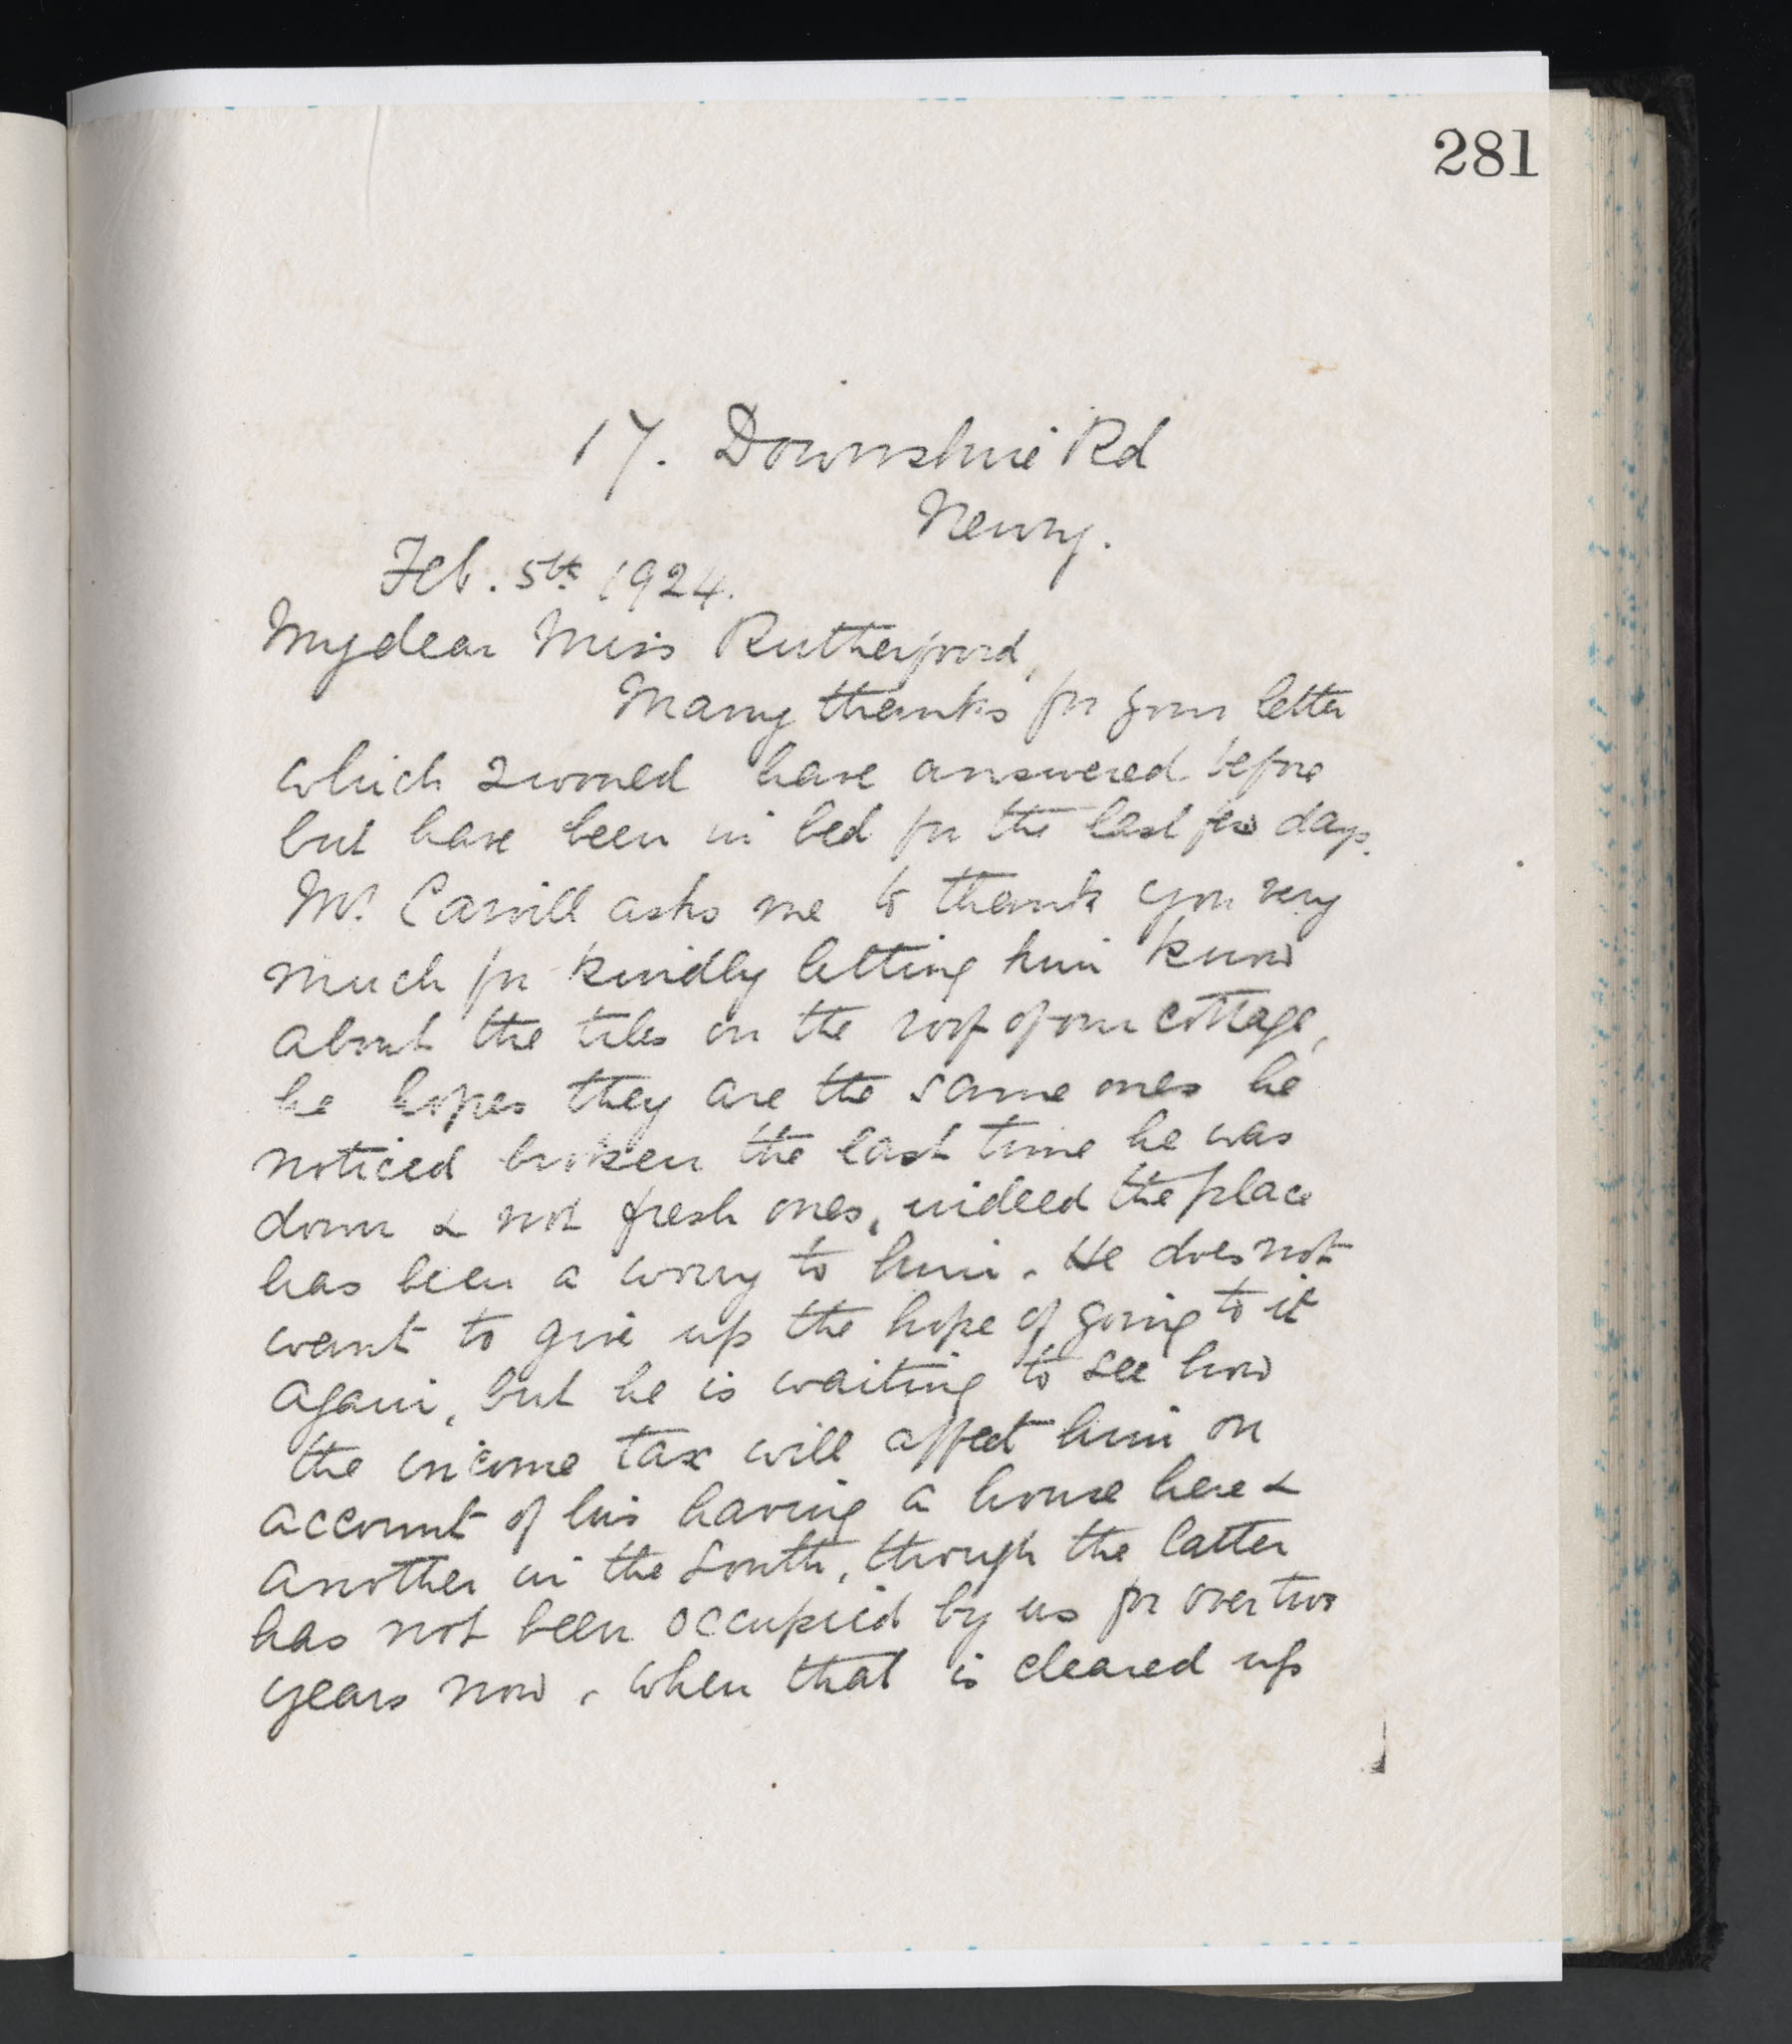 281
17. Downshire Rd
Newry.
Feb. 5th 1924.
My dear Miss Rutherfoord,
Many thanks for your letter
which I would have answered before
but have been in bed for the last few days.
Mr. Carvill asks me to thank you very
much for kindly letting him know
about the tiles on the roof of our cottage,
he hopes they are the same ones he
noticed broken the last time he was
down & not fresh ones, indeed the place
has been a worry to him. He does not
want to give up the hope of going to it
again, but he is waiting to see how
the income tax will affect him on
account of his having a house here &
another in the South, though the latter
has not been occupied by us for over two
years now, when that is cleared up